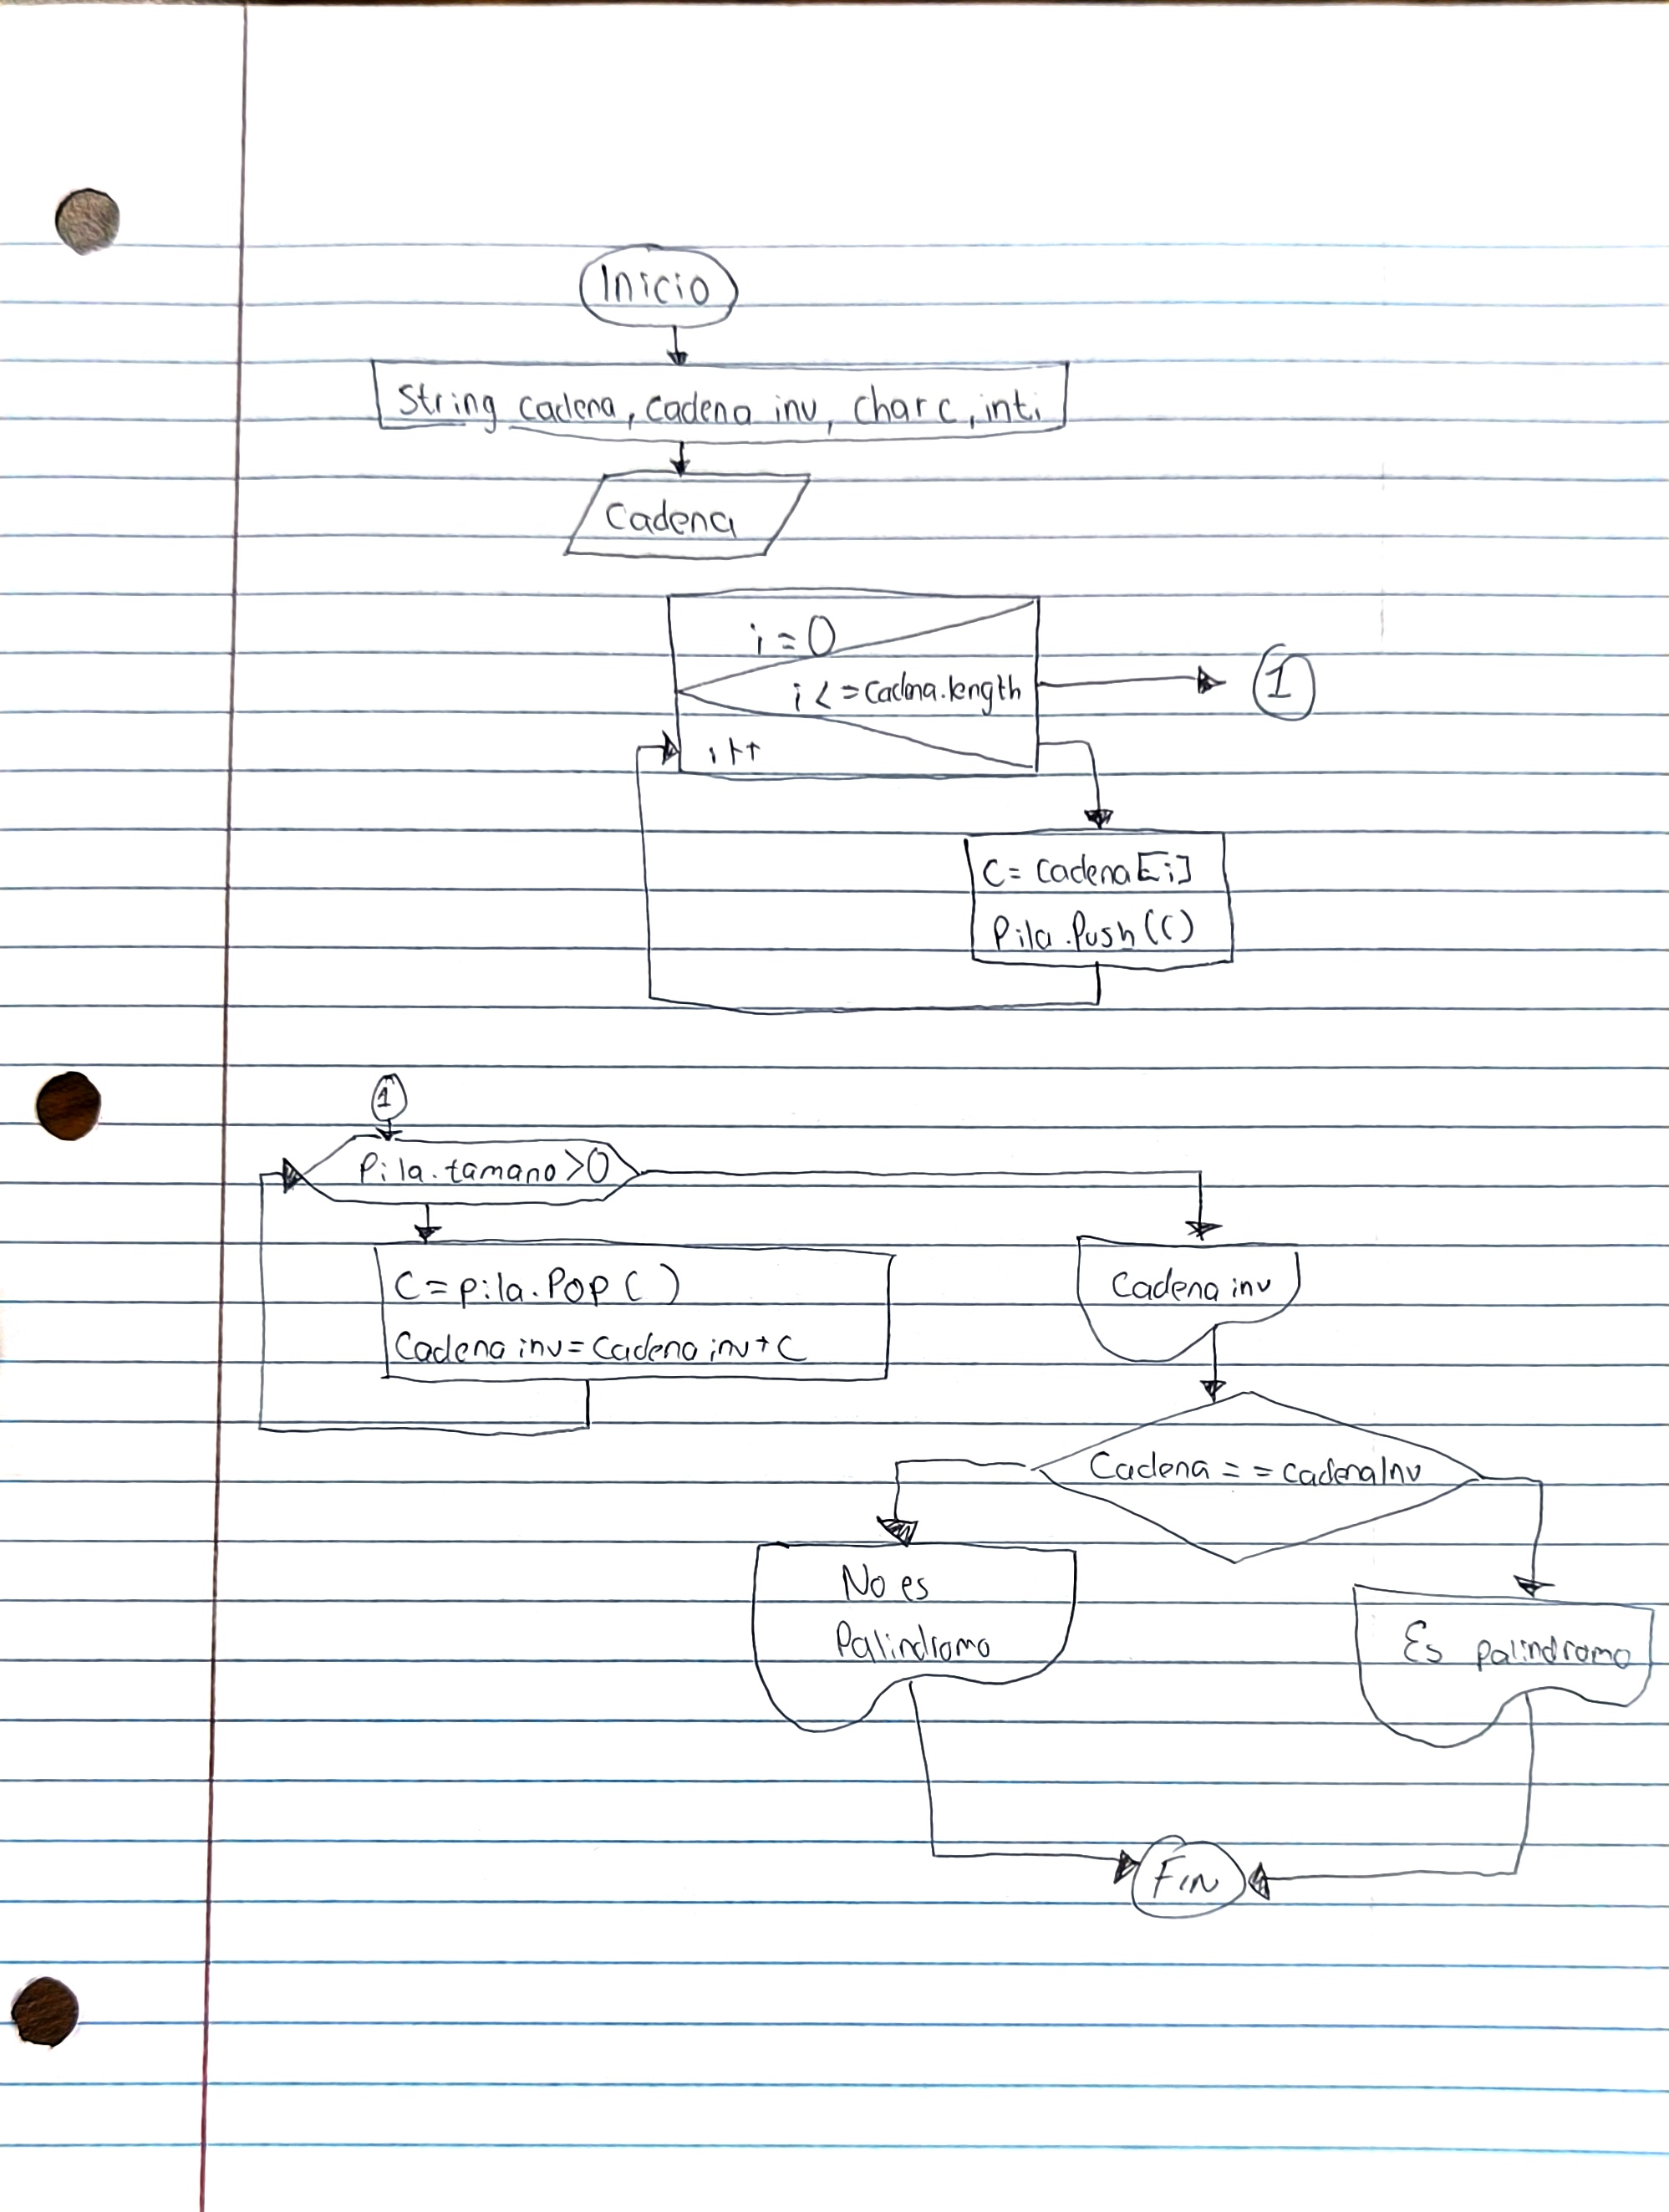 Inicio
String cadena, cadena inv, char c, int i
Cadena
i = 0
i <= cadena.length
1
i++
C = cadena[i]
Pila.Push(C)
1
Pila.tamano >0
C = pila.Pop ( )
Cadena inv
Cadena inv = cadena inv + C
Cadena == cadenaInv
No es
Palindromo
Es palindromo
FIN